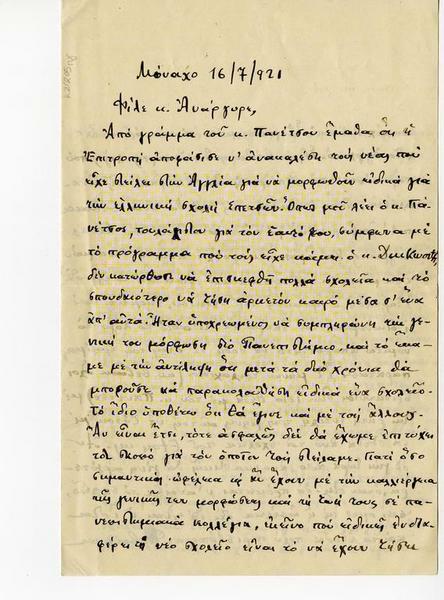 Μόναχο 16/7/921
Φίλε κ. Ανάργυρε,
Από γράμμα του κ. Πανέτσου έμαθα ότι η
Επιτροπή αποφάσισε ν' ανακαλέση τους νέους που
είχε στείλει στην Αγγλία για να μορφωθούν ειδικά για
την ελληνική σχολή Σπετσών. Όπως μου λέει ο κ. Πα-
νέτσος, τουλάχιστον για τον εαυτό του, σύμφωνα με
το πρόγραμμα που τους είχε κάμει ο κ.
δεν κατώρθωσε να επισκεφθή πολλά σχολεία και το
σπουδαιότερο να ζήση αρκετόν καιρό μέσα σ' ένα
απ' αυτά. Ήταν υποχρεωμένος να συμπληρώνη την γε-
νική του μόρφωση στο Πανεπιστήμιο, και το έκα-
με με την αντίληψη ότι μετά τα δυο χρόνια θα
μπορούσε να παρακολουθήση ειδικά ένα σχολείο.
Το ίδιο υποθέτω ότι θα έγινε και με τους άλλους.
Αν είναι έτσι, τότε ασφαλώς δεν θα έχωμε επιτύχει
τον σκοπό για τον οποίον τους στείλαμε. Γιατί όσο
σημαντική ωφέλεια κι αν έχουν με την καλλιέργεια
της γενικής των μορφώσεως και τη ζωή τους σε πα-
νεπιστημιακά κολλέγια, εκείνο που ειδικά ενδια-
φέρει το νέο σχολείο είναι το να έχουν ζήσει